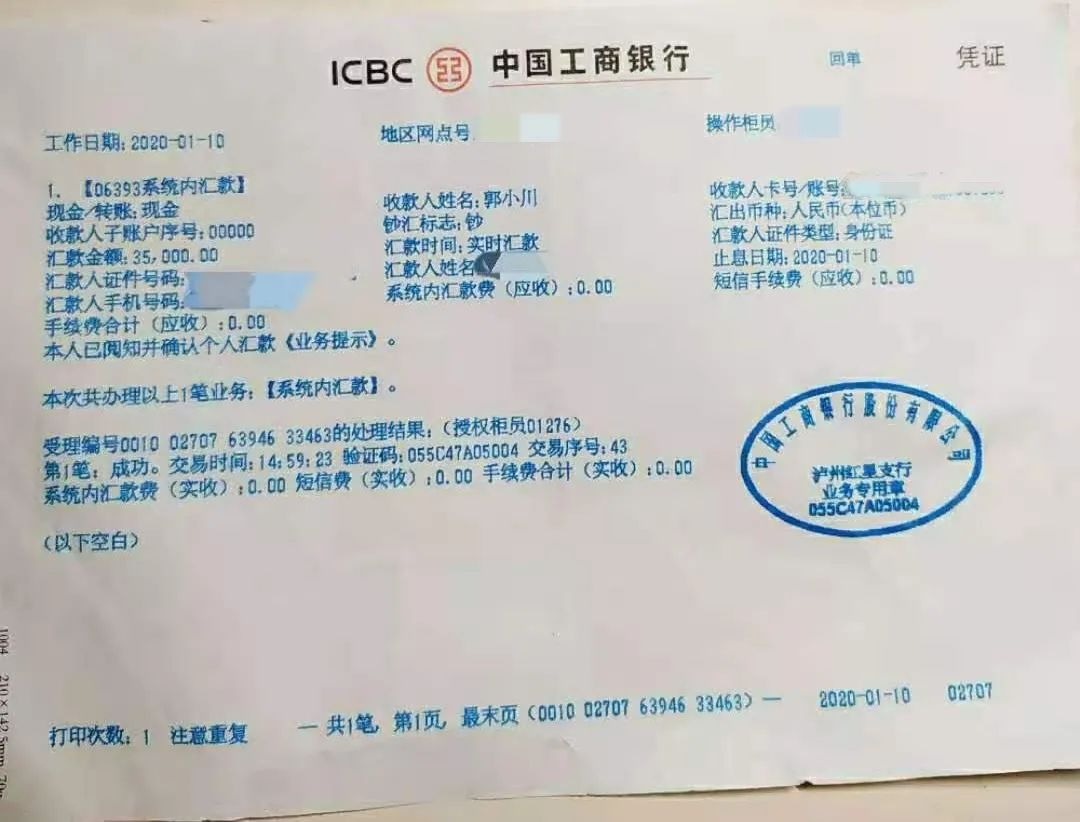 ICBC 中国工商银行 回单 凭证
工作日期:2020-01-10 地区网点号 操作柜员
1. 【06393系统内汇款】
现金/转账:现金 收款人姓名:郭小川 收款人卡号/账号
收款人子账户序号:00000 钞汇标志:钞 汇出币种:人民币(本位币)
汇款金额:35,000.00 汇款时间:实时汇款 汇款人证件类型:身份证
汇款人证件号码: 汇款人姓名 止息日期:2020-01-10
汇款人手机号码: 系统内汇款费(应收):0.00 短信手续费(应收):0.00
手续费合计(应收):0.00
本人已阅知并确认个人汇款《业务提示》。
本次共办理以上1笔业务:【系统内汇款】。
受理编号0010 02707 63946 33463的处理结果:(授权柜员01276)
第1笔:成功。交易时间:14:59:23 验证码:055C47A05004 交易序号:43
系统内汇款费(实收):0.00 短信费(实收):0.00 手续费合计(实收):0.00
(以下空白)
中国工商银行股份有限公司
泸州红星支行
业务专用章
055C47A05004
打印次数:1 注意重复 — 共1笔,第1页,最末页(0010 02707 63946 33463) — 2020-01-10 02707
1004 210×142.5mm